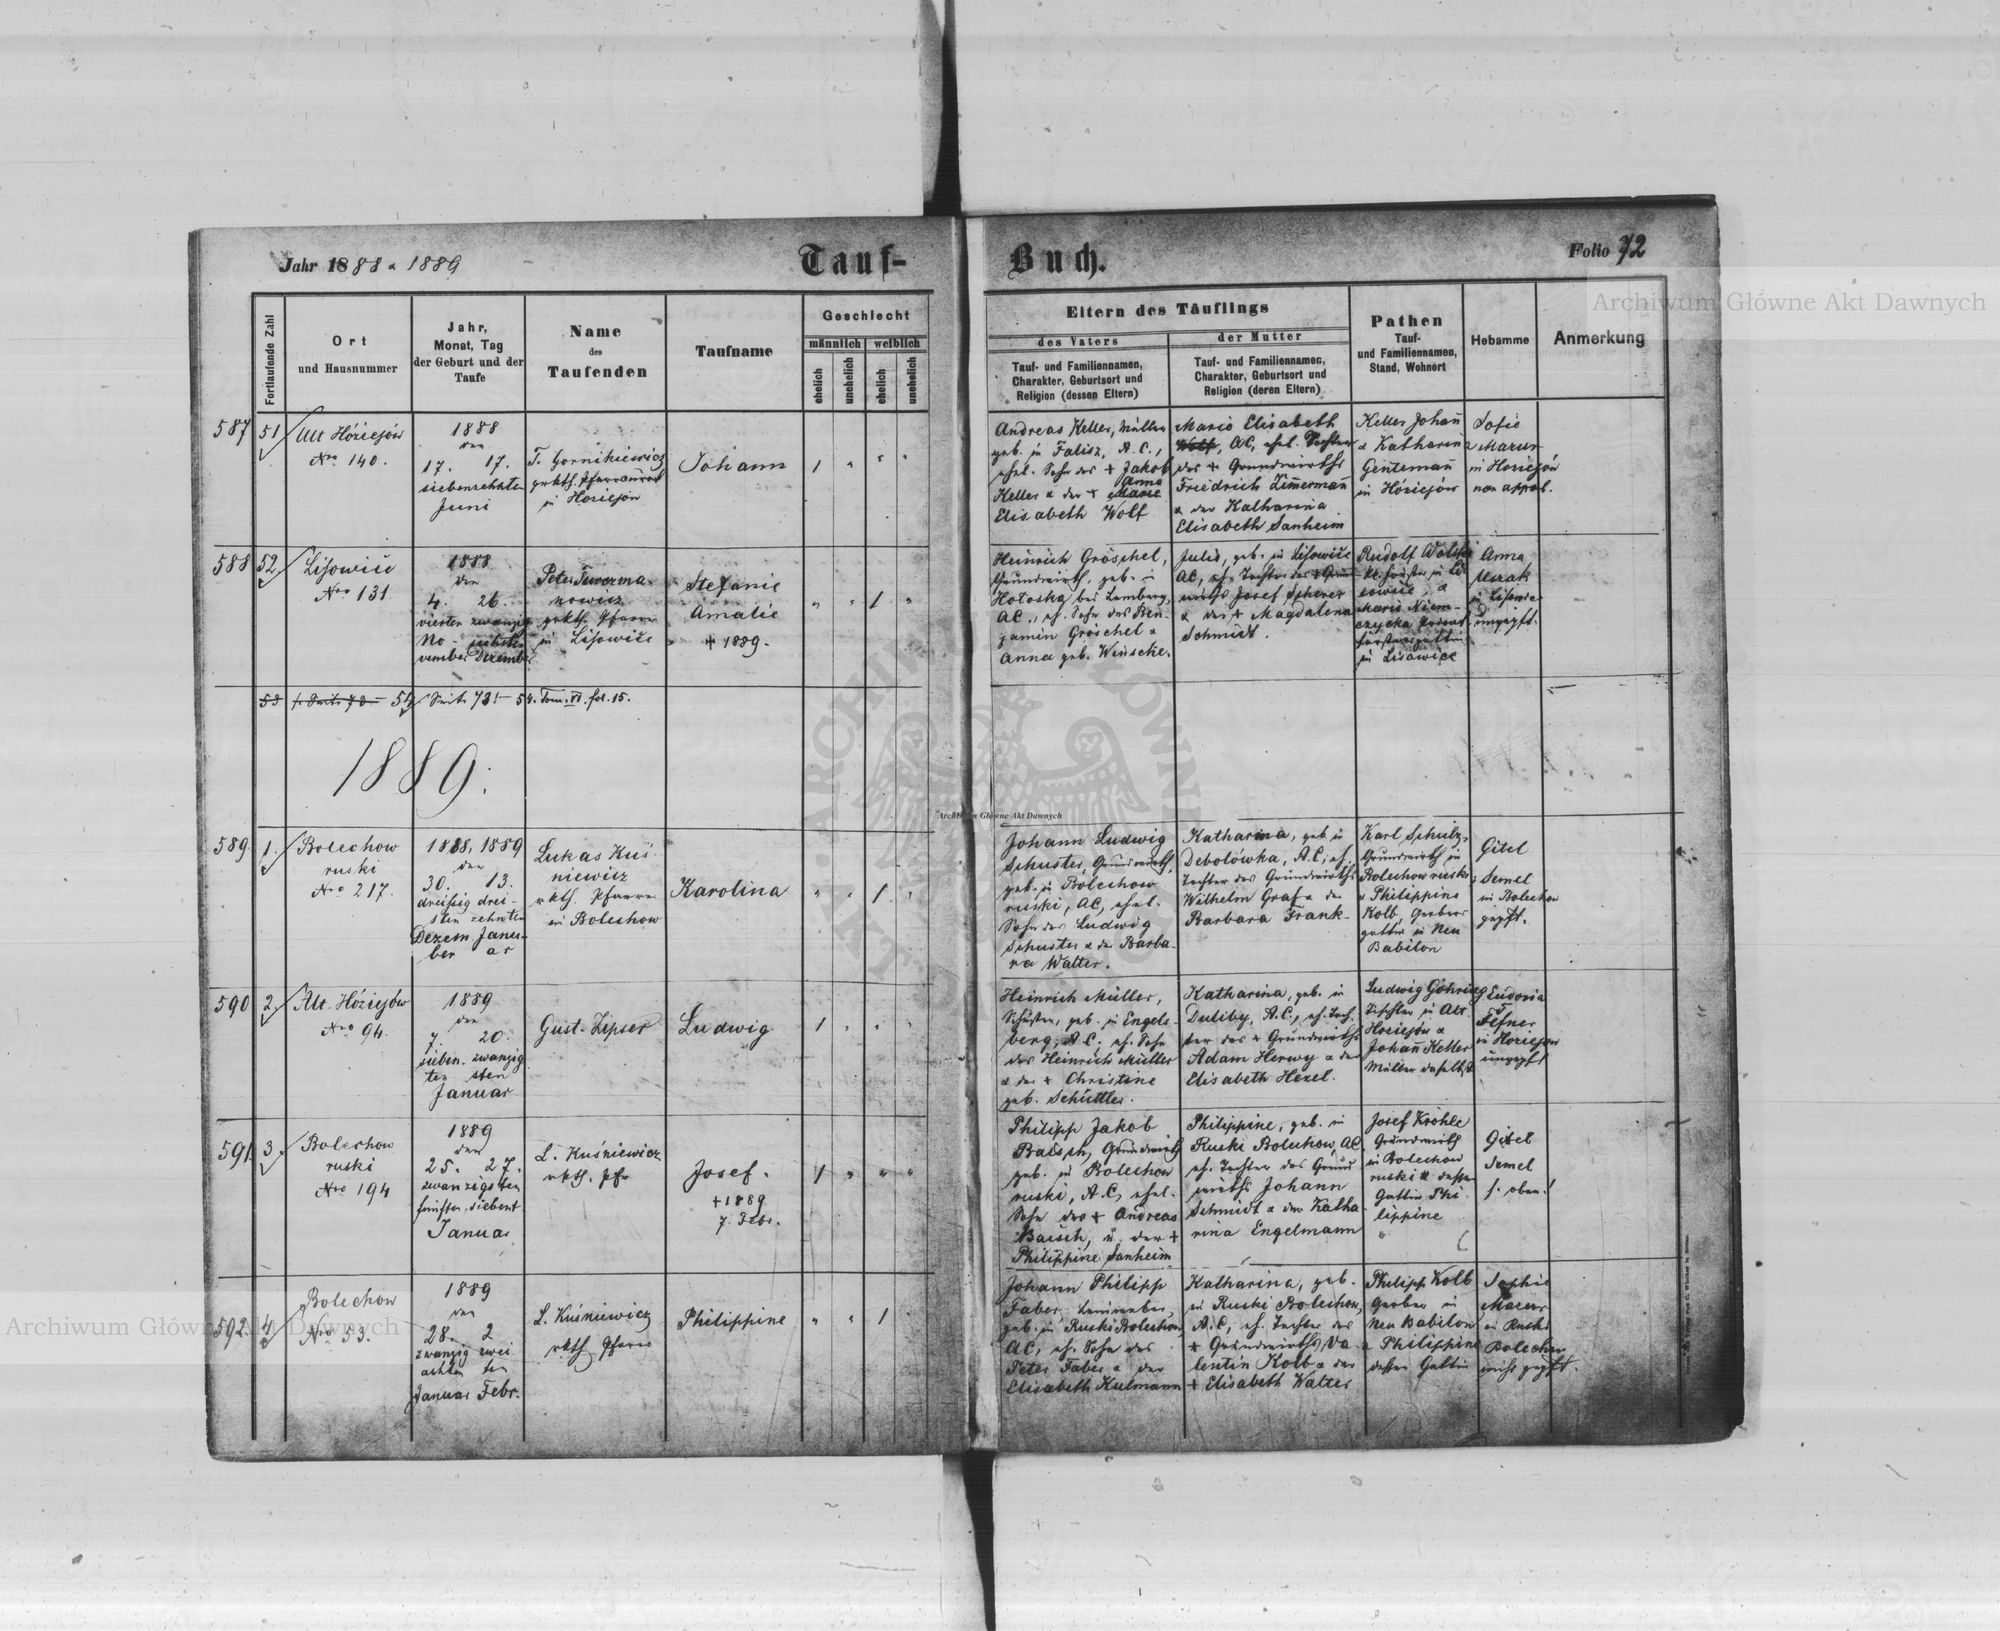 Jahr 1888 & 1889
Tauf-
Buch.
Folio 72
Archiwum Główne Akt Dawnych
Fortlaufende Zahl
Ort
und Hausnummer
Jahr,
Monat, Tag
der Geburt und der
Taufe
Name
des
Taufenden
Taufname
Geschlecht
männlich
weiblich
ehelich
unehelich
ehelich
unehelich
Eltern des Täuflings
des Vaters
der Mutter
Tauf- und Familiennamen,
Charakter, Geburtsort und
Religion (dessen Eltern)
Tauf- und Familiennamen,
Charakter, Geburtsort und
Religion (deren Eltern)
Pathen
Tauf-
und Familiennamen,
Stand, Wohnort
Hebamme
Anmerkung
587
51
Alt Hóziejów
Nro 140.
1888
den
17. 17.
siebenzehnten
Juni
T. Gornikiewicz
grkth. Pfarr
in Hoziejów
Johann
1 " " "
Andreas Keller, Müller
geb. in Falisz, A.C.,
ehel. Sohn des + Jakob
Keller & der + Marie
Anna
Elisabeth Wolf
Marie Elisabeth
Wolf, AC, ehel. Tochter
des + Grundwirths
Friedrich Zimermañ
& der Katharina
Elisabeth Sanheim
Keller Johañ
& Katharina
Gentemañ
in Hóziejów
Sofie
Mazur
in Hoziejów
non appob.
588
52.
Lisowice
Nro 131
1888
den
4. 26.
vierten zwanzig
No- sechsten
vember Dezember
Peter Tworzma-
nowicz
grkth. Pfarrer
in Lisowice
Stefanie
Amalie
+ 1889.
" " 1 "
Heinrich Gröschel,
Grundwirth, geb. in
Hotoska bei Lemberg,
AC., eh. Sohn des Ben-
jamin Gröschel &
Anna geb. Weuscke.
Julie, geb. in Lisowice
AC, eh. Tochter des + Grund-
wirths Josef Scherer
& der + Magdalena
Schmidt.
Rudolf
kk. Förster in Li-
sowice, &
Marie Niem-
czycka
in Lisowice
Anna
in Lisowice
ungepft.
53 s. Seite 73 54 Seite 73! 54. Tom. VI. fol. 15.
1889.
589
1.
Bolechow
ruski
Nro 217.
1888, 1889
den
30. 13.
dreißig drei-
sten zehnten
Dezem Janu-
ber ar
Lukas Kuś-
niewicz
rkth. Pfarrer
in Bolechow
Karolina
" " 1 "
Johann Ludwig
Schuster, Grundwirth,
geb. in Bolechow
ruski, AC, ehel.
Sohn des Ludwig
Schuster & der Barba-
ra Walter.
Katharina, geb. in
Debolówka, A.C., eh.
Tochter des Grundwirths
Wilhelm Graf & der
Barbara Frank.
Karl Schulz,
Grundwirth in
Bolechow ruski
& Philippine
Kolb, Gerbers
gattin in Neu
Babilon
Gitel
Semel
in Bolechow
gepft.
Archiwum Główne Akt Dawnych
590
2.
Alt Hóziejów
Nro 94.
1889
den
7. 20.
sieben- zwanzig
ten sten
Januar
Gust. Zipser
Ludwig
1 " " "
Heinrich Müller,
Schuster, geb. in Engels-
berg, A.C., eh. Sohn
des Heinrich Müller
& der + Christine
geb. Schüttler.
Katharina, geb. in
Duliby, A.C., eh. Toch-
ter des + Grundwirths
Adam Herwy & der
Elisabeth Hexel.
Ludwig Göhring
Tischler in Alt
Hoziejów &
Johañ Keller
Müller daselbst
Eudoxia
Fefner
in Hoziejow
ungepft
591.
3.
Bolechow
ruski
Nro 194
1889
den
25. 27.
zwanzigsten
fünften siebent
Januar
L. Kuśniewicz
rkth. Pfr
Josef.
+ 1889
7. Febr.
1 " " "
Philipp Jakob
Baisch, Grundwirth
geb. in Bolechow
ruski, A.C, ehel.
Sohn des + Andreas
Baisch, u. der +
Philippine Sanheim
Philippine, geb. in
Ruski Bolechow, AC
eh. Tochter des Grund
wirths Johann
Schmidt & der Katha-
rina Engelmann
Josef Kröhle
Grundwirth
in Bolechow
ruski & dessen
Gattin Phi-
lippine
Gitel
Semel
s. oben!
592.
4.
Bolechow
Nro 53.
1889
den
28. 2
zwanzig zwei
achten ten
Januar Febr.
L. Kuśniewicz
rkth. Pfarrer
Philippine
" " 1 "
Johann Philipp
Faber,
geb. in Ruski Bolechow,
AC, eh. Sohn des
Peter Faber & der
Elisabeth Kulmann
Katharina, geb.
in Ruski Bolechow,
A.C, eh. Tochter des
+ Grundwirths Va-
lentin Kolb & der
+ Elisabeth Walter
Philipp Kolb
Gerber in
Neu Babilon
& Philippine
dessen Gattin
Sophie
Mazur
in Ruski
Bolechow
nicht gepft.
Archiwum Główne Akt Dawnych